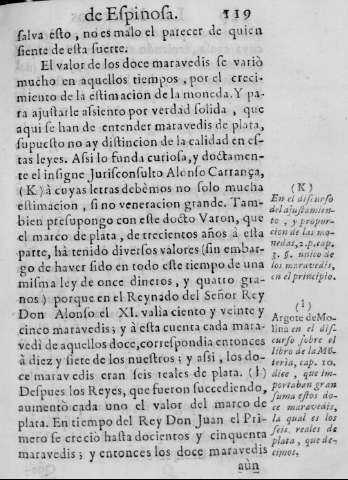 de Espinosa. 119
salva esto, no es malo el parecer de quien
siente de esta suerte.
El valor de los doce maravedis se variò
mucho en aquellos tiempos, por el creci-
miento de la estimacion de la moneda. Y pa
ra ajustarle assiento por verdad solida, que
aqui se han de entender maravedis de plata,
supuesto no ay distincion de la calidad en es-
tas leyes. Assi lo funda curiosa, y doctamen-
te el insigne Jurisconsulto Alonso Carrança,
(K) à cuyas letras debèmos no solo mucha
estimacion, si no veneracion grande. Tam-
bien presupongo con este docto Varon, que
el marco de plata, de trecientos años à esta
parte, hà tenido diversos valores (sin embar-
go de haver sido en todo este tiempo de una
misma ley de once dineros, y quatro gra-
nos) porque en el Reynado del Señor Rey
Don Alonso el XI. valìa ciento y veinte y
cinco maravedis; y à esta cuenta cada mara-
vedì de aquellos doce, correspondia entonces
à diez y siete de los nuestros; y assi, los do-
ce maravedis eran seis reales de plata. (l)
Despues los Reyes, que fueron succediendo,
aumentò cada uno el valor del marco de
plata. En tiempo del Rey Don Juan el Pri-
mero se creciò hasta docientos y cinquenta
maravedis; y entonces los doce maravedis
aùn
(K)
En el discurso
del ajustamien-
to, y propor-
cion de las mo-
nedas, 2. p. cap.
3. §. unico de
los maravedis,
en el principio.
(l)
Argote de Mo-
lina en el dis-
curso sobre el
libro de la Mõ-
teria, cap. 10.
dice, que im-
portaban gran
suma estos do-
ce maravedis,
la qual es los
seis reales de
plata, que de-
cimos.